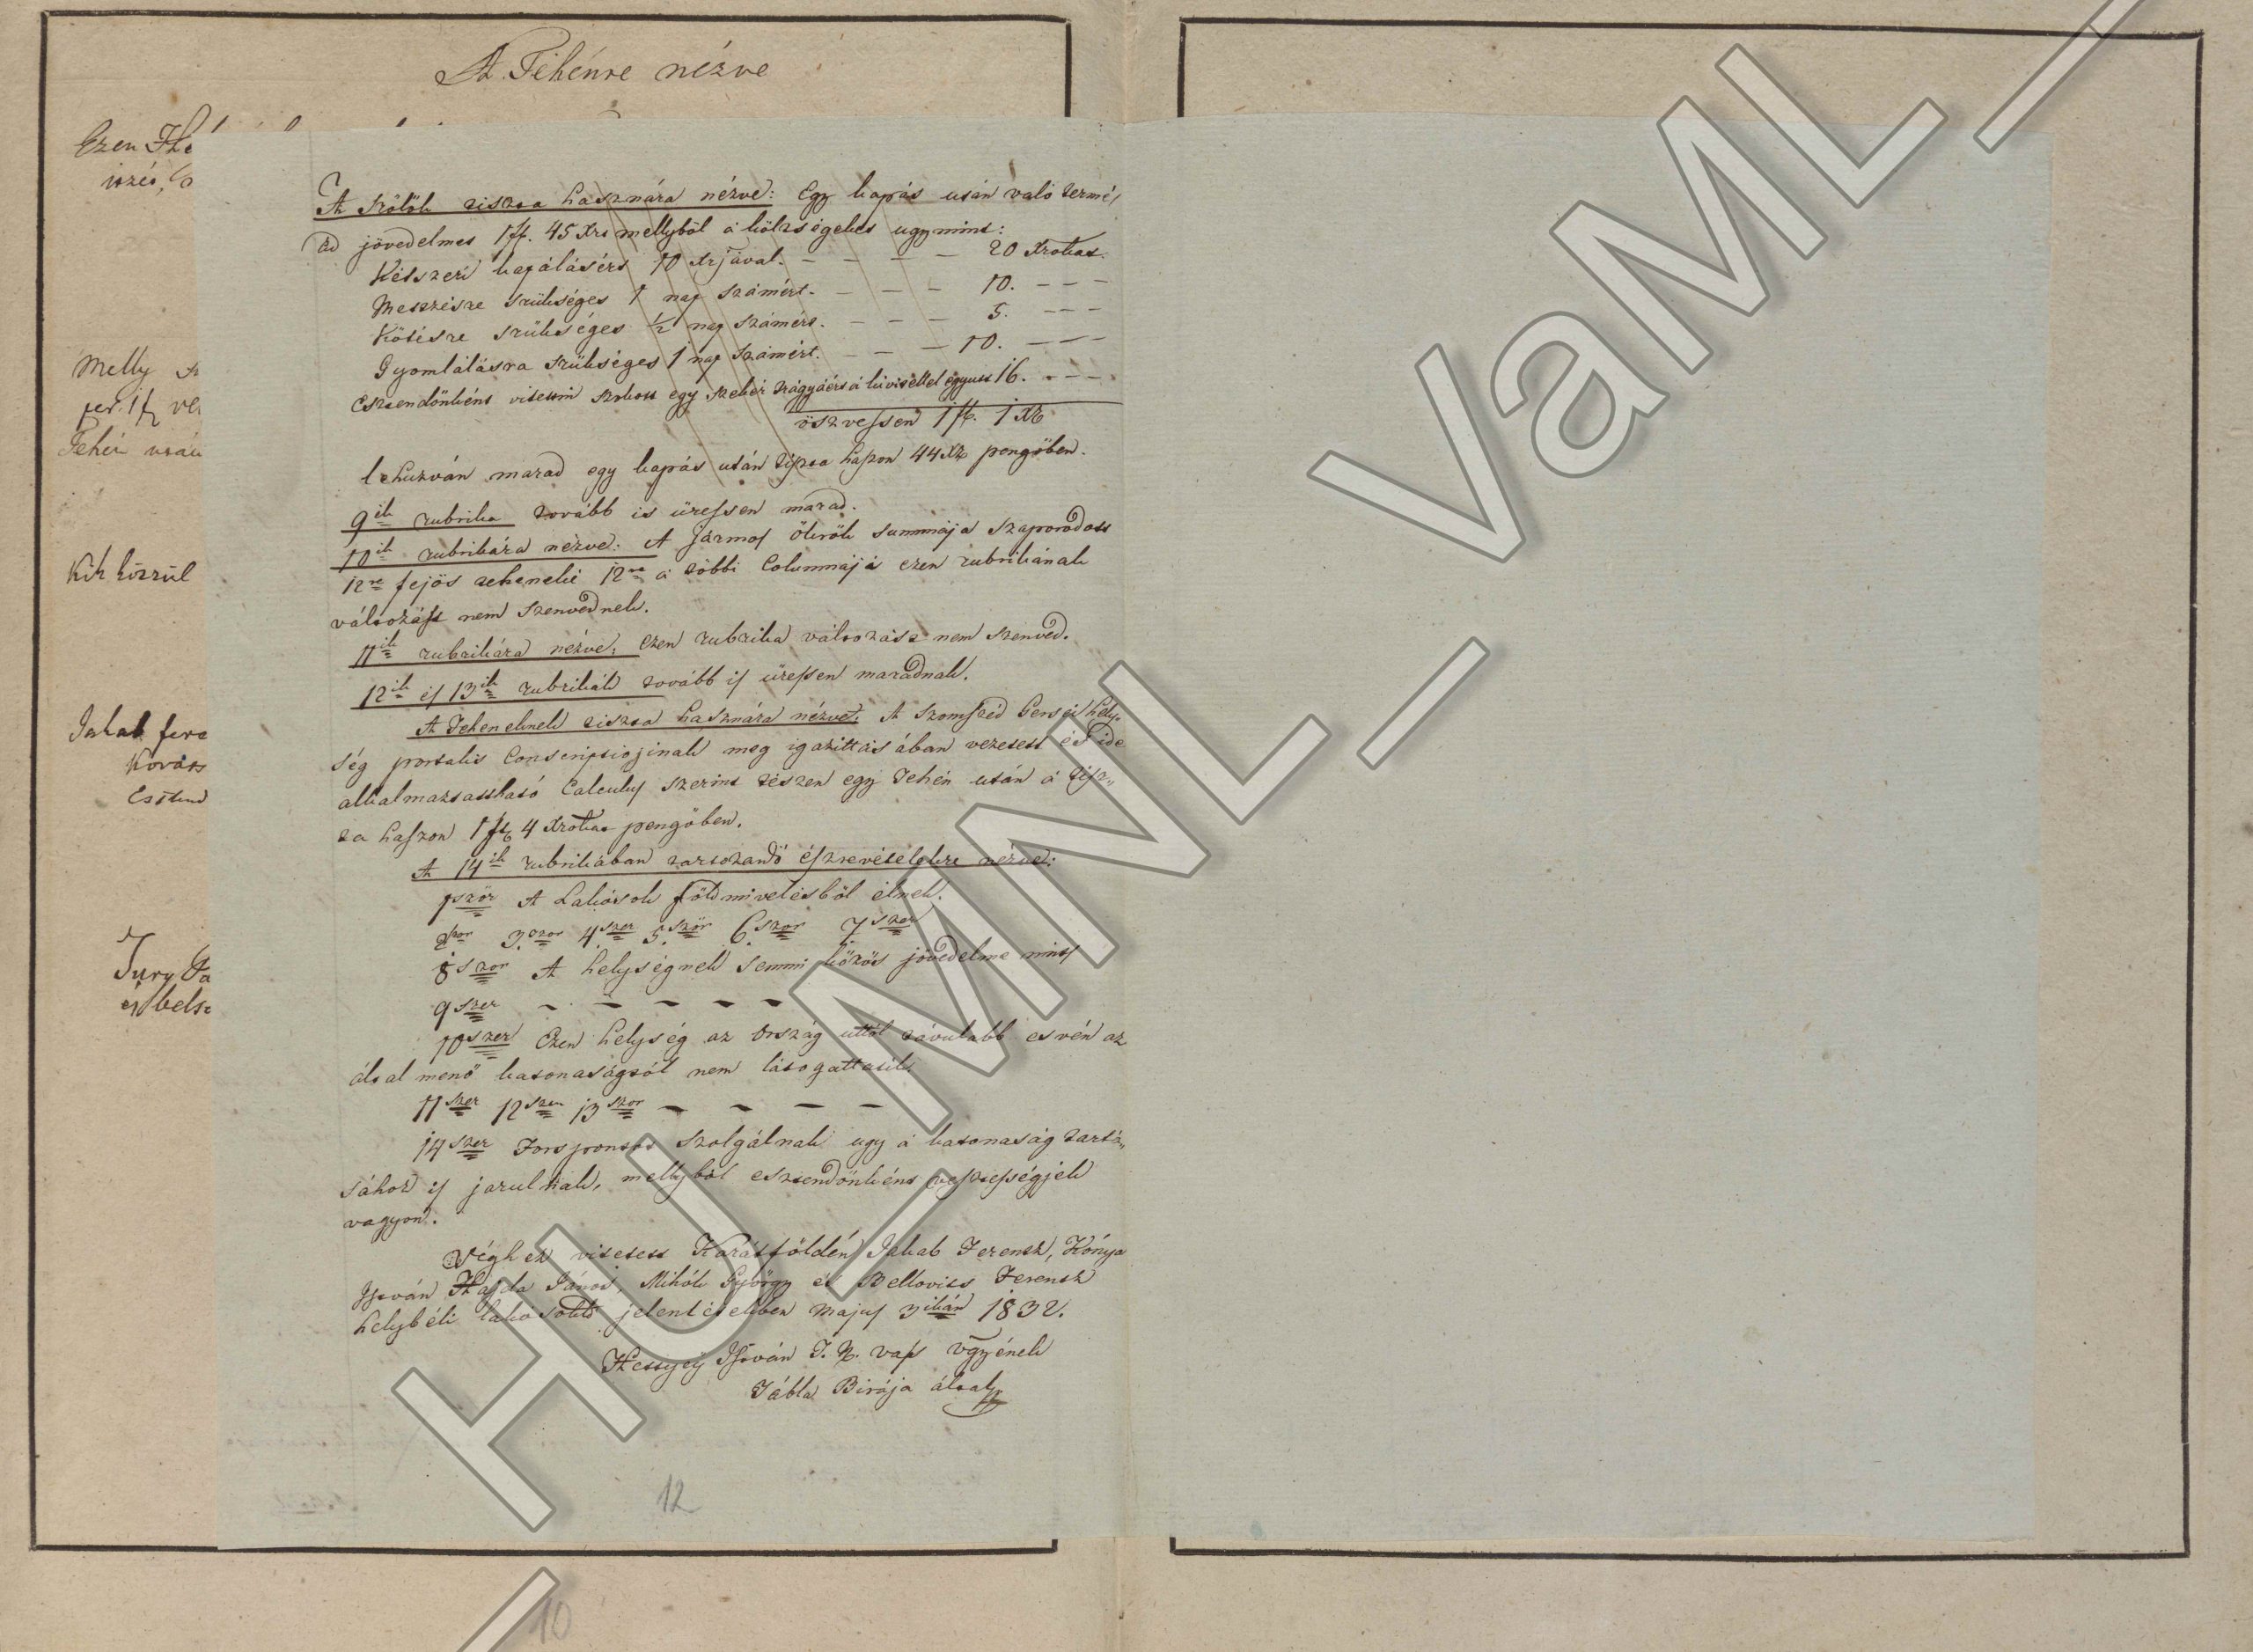 A Tehénre nézve
Ezen
Melly
per. 1 f
Tehén után
Kik közzül
Jakab fere
Kováts
Esztend
Tury
és bels
A Szőlők tiszta hasznára nézve: Egy kapás után való termé,
jövedelmes 1 ft. 45 Xrs mellyböl a költségeket ugymint:
Kétszeri kapálásért 10 Xrjával. — — — — 20 Xrokat.
Metszésre szükséges 1 nap számért. — — — 10. — — —
Kötésre szükséges 1/2 nap számért. — — — 5. — — —
Gyomlálásra szükséges 1 nap számért. — — — 10. — — —
Esztendönként vitetni szokott egy szekér trágyáért a kivitellel együtt 16. — — —
öszvessen 1 ft. 1 Xr
lehuzván marad egy kapás után tiszta haszon 44 Xr pengöben.
9ik rubrika tovább is üressen marad.
10ik rubrikára nézve: A jármos Ökrök summája szaporodott
12re fejös teheneké 12re a többi Columnáji ezen rubrikának
változást nem szenvednek.
11ik rubrikára nézve: ezen rubrika változást nem szenved.
12ik és 13ik rubrikák tovább is üressen maradnak.
A Teheneknek tiszta hasznára nézve: A szomszéd hely,
ség portalis Conscriptiojinak meg igazittásában vezetett és ide
alkalmaztatható Calculus szerint tészen egy Tehén után a tisz,,
ta haszon 1 ft 4 Xrokat pengöben.
A 14ik rubrikában tartozandó észrevételekre nézve:
1ször A Lakósok földmivelésböl élnek.
2szor 3szor 4szer 5ször 6szor 7szer
8szor A helységnek semmi közös jövedelme nints
9szer — — — — —
10szer Ezen helység az Ország uttól távulabb esvén az
által menö katonaságtól nem látogattatik
11szer 12szer 13szor — — — —
14szer Forspontot szolgálnak ugy a katonaság tartá,,
sához is járulnak, mellyböl esztendönként vesztességjek
vagyon.
Véghez vitetett Karátföldén Jakab Ferentz, Kónya
István Hajda János, Mihók György és Bellovits Ferentz
helybéli lakósok jelenlétekben Majus 3ikán 1832.
István T. N. Vas Vgyének
Tábla Birája által
12
10
HU_MNL_VaML_